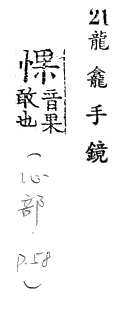 21龍龕手鏡
惈
音果
敢也
(心部 p.58)